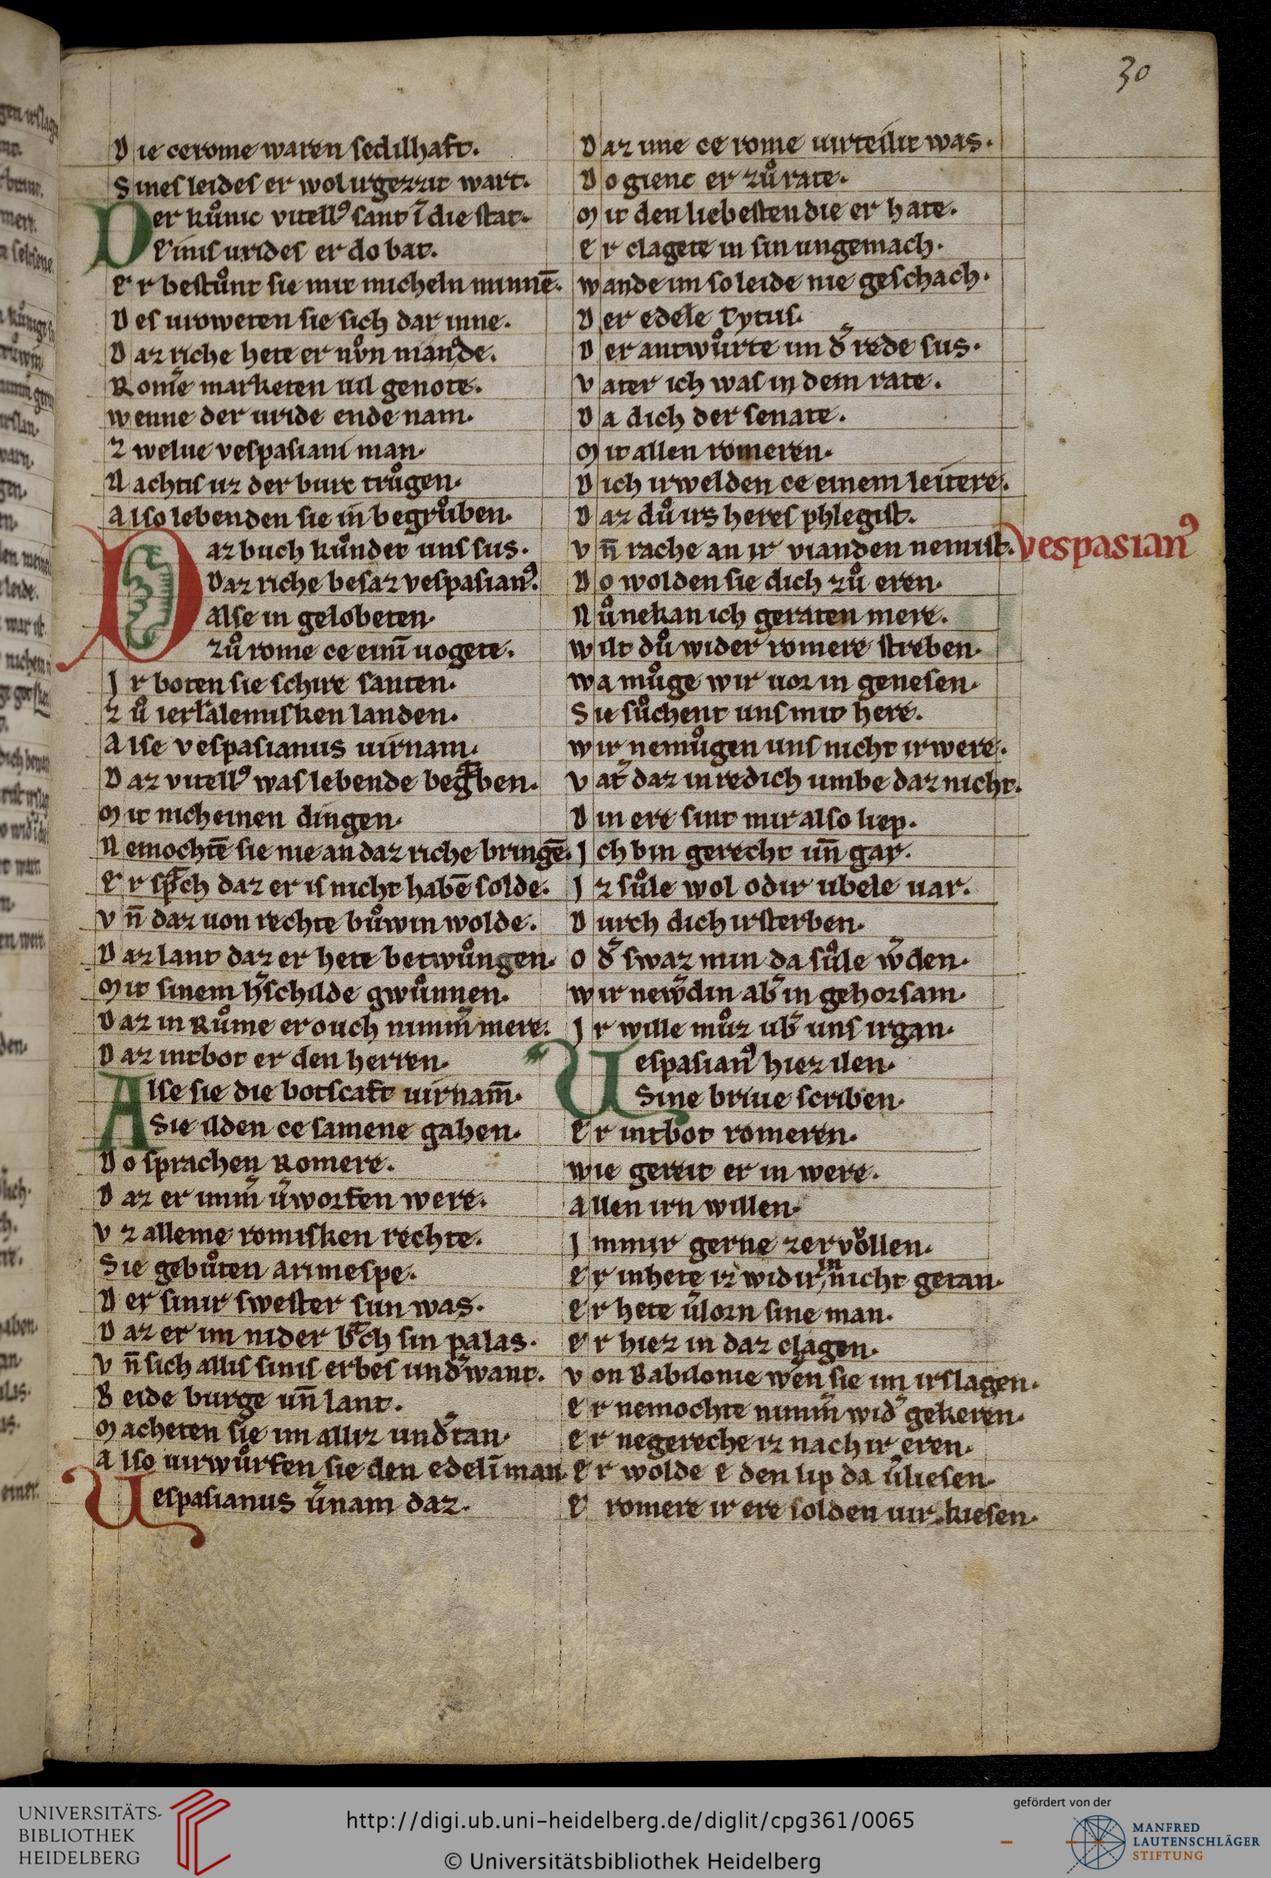 30
Die cerome waren sedilhaft.
Sines leides er wol irgezzit wart.
Der kuͦnic vitellꝰ sant ī die stat.
Einis vrides er do bat.
Er bestuͦnt sie mit micheln minnē.
Des vroweten sie sich dar inne.
Daz riche hete er nvͦn manͦde.
Rome marketen uil genote.
wenne der uride ende nam.
zwelue vespasiani man.
Nachtis uz der burc truͦgen.
Also lebenden sie in begruͦben.
Daz buch kuͦndet uns sus.
Daz riche besaz vespasianꝰ.
Alse in gelobeten.
zuͦ rome ce einī uogete.
Ir boten sie schire santen.
zuͦ ierl̄alemisken landen.
Alse vespasianus uirnam.
Daz vitellꝰ was lebende begͣben.
Mit nicheinen dingen.
Nemochtē sie nie an daz riche bringē.
Er spͣch daz er is nicht habē solde.
Vn̄ daz uon rechte buͦwin wolde.
Daz lant daz er hete betwuͦngen.
Mit sinem h͛schilde gwuͦnnen.
Daz in Ruͦme er ouch nimm͛ mere.
Daz intbot er den herren.
Alse sie die botscaft uirnam̄.
Sie ilden ce samene gahen.
Do sprachen Romere.
Daz er imm͛ v͛worfen were.
Vz alleme romisken rechte.
Sie gebuͦten arimespe.
Der sinir swester sun was.
Daz er im nider bͣch sin palas.
Vn̄ sich allis sinis erbes und͛want.
Beide burge un̄ lant.
Macheten sie im alliz und͛tan.
Also uirwuͦrfen sie den edelī man.
Uespasianus v͛nam daz.
Daz ime ce rome uirteilit was.
Do gienc er zuͦ rate.
Mit den liebesten die er hate.
Er clagete in sin ungemach.
wande im so leide nie geschach.
Der edele Tytus.
Der antwuͦrte im d͛ rede sus.
Vater ich was in dem rate.
Da dich der senate.
Mit allen romeren.
Dich irwelden ce einem leitere.
Daz duͦ irs heres phlegist.
Vn̄ rache an ir vianden nemist.
vespasianꝰ
Do wolden sie dich zuͦ eren.
Nuͦ nekan ich geraten mere.
wilt duͦ wider romere streben.
wa muͦge wir uor in genesen.
Sie suͦchent uns mit here.
wir nemuͦgen uns nicht irwere.
Vat͛ daz inredich umbe daz nicht.
Din ere sint mir also liep.
Ich bin gerecht un̄ gar.
Iz suͦle wol odir ubele uar.
Durch dich irsterben.
Od͛ swaz min da suͦle w͛den.
wir new͛din ab͛ in gehorsam.
Ir wille muͦz ub͛ uns irgan.
Uespasianꝰ hiez ilen.
Sine briue scriben.
Er intbot romeren.
wie gereit er in were.
Allen irn willen.
Immir gerne zervoͮllen.
Er inhete iz widir in nicht getan.
Er hete v͛lorn sine man.
Er hiez in daz clagen.
Von Babilonie wen sie im irslagen.
Er nemochte nimm͛ wid͛ gekeren.
Er negereche iz nach ir eren.
Er wolde e den lip da v͛liesen.
E romere ir ere solden uir kiesen.
UNIVERSITÄTS-
BIBLIOTHEK
HEIDELBERG
http://digi.ub.uni-heidelberg.de/diglit/cpg361/0065
© Universitätsbibliothek Heidelberg
gefördert von der
MANFRED
LAUTENSCHLÄGER
STIFTUNG